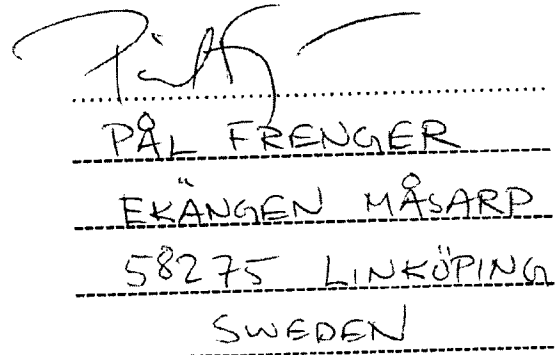 PÅL FRENGER
EKÄNGEN MÅSARP
58275 LINKÖPING
SWEDEN